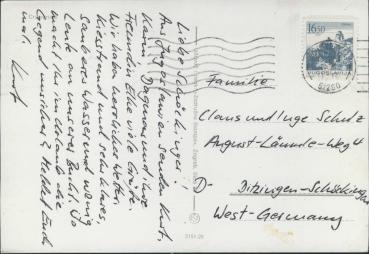 Liebe Schöckinger!
Aus Jugoslawien senden Kurt,
Karin, Dagmar und ihre
Freundin Elke viele Grüße.
Wir haben herrliches Wetter.
Kiesstrand und sehr klares,
sauberes Wasser und wenig
Leute an unserer Bucht. Wo
macht Ihr im Urlaub die
Gegend unsicher? Meldet Euch
mal.
Kurt
16.50
JUGOSLAVIJA
Familie
Claus und Inge Schulz
August-Lämmle-Weg 4
D-
Ditzingen-Schöckingen
West-Germany